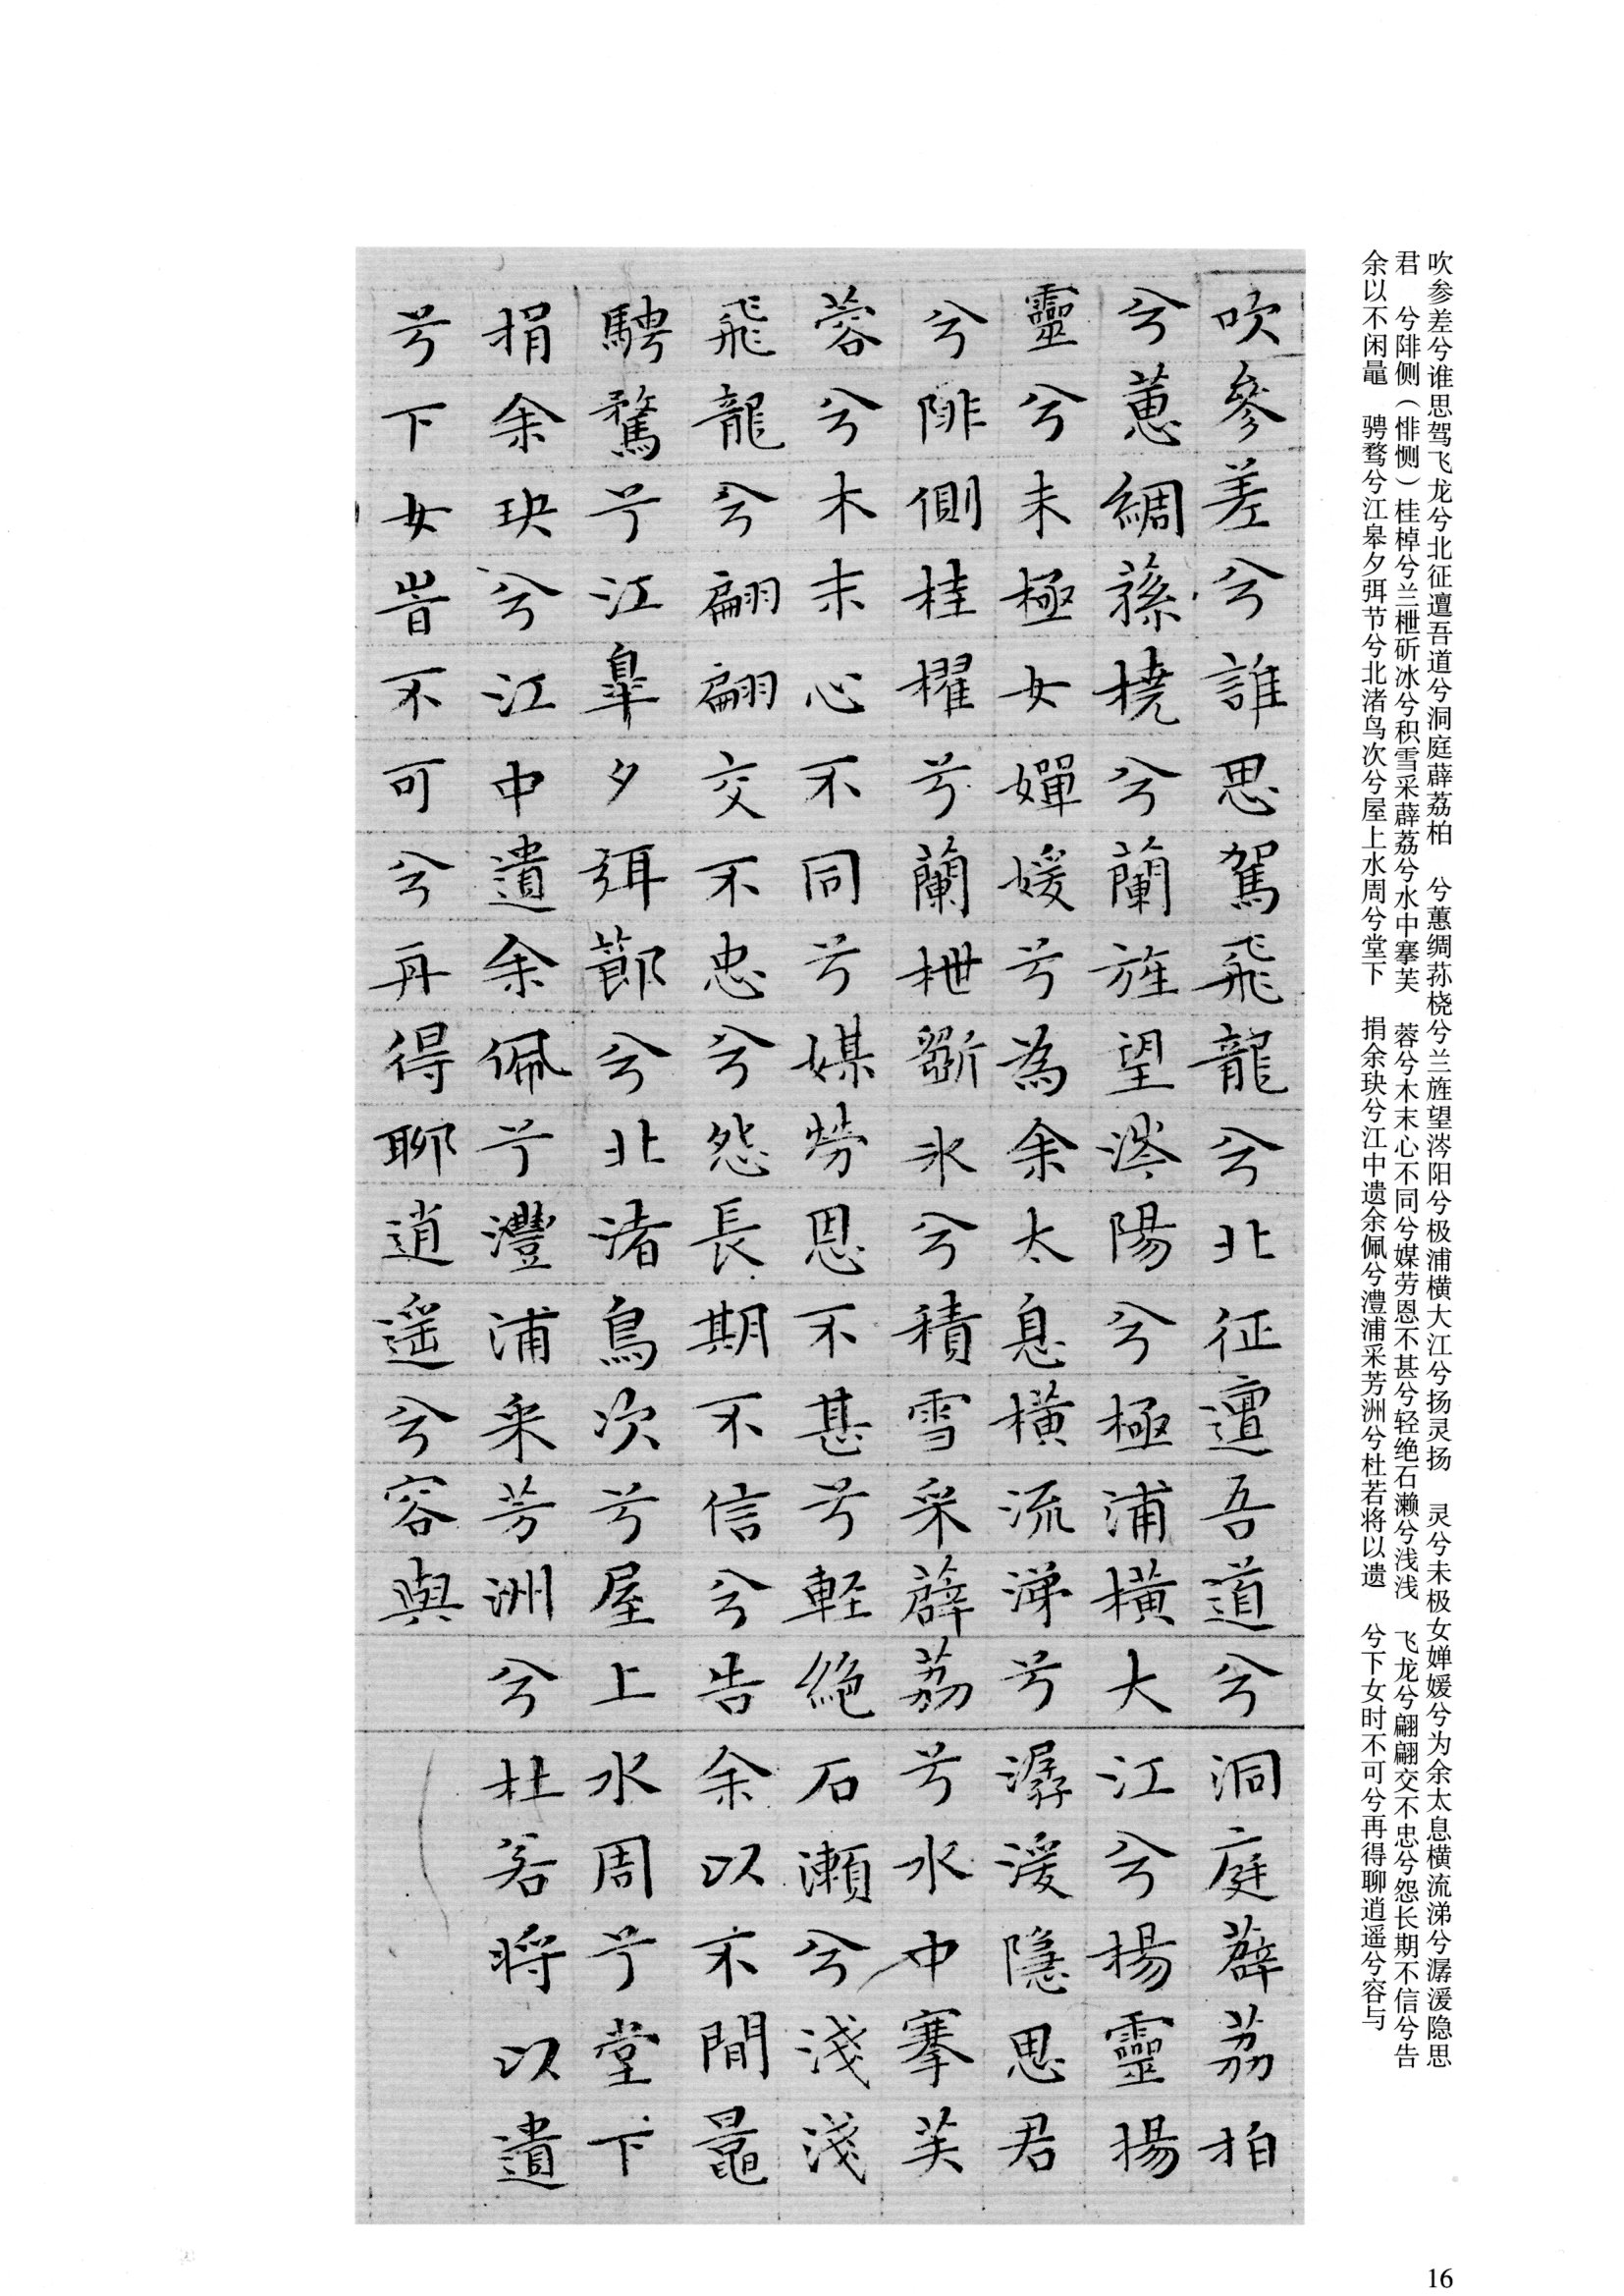 吹参差兮谁思驾飞龙兮北征邅吾道兮洞庭薜荔柏　兮蕙绸荪桡兮兰旌望涔阳兮极浦横大江兮扬灵扬　灵兮未极女婵媛兮为余太息横流涕兮潺湲隐思
君　兮陫侧（悱恻）桂棹兮兰枻斫冰兮积雪采薜荔兮水中搴芙　蓉兮木末心不同兮媒劳恩不甚兮轻绝石濑兮浅浅　飞龙兮翩翩交不忠兮怨长期不信兮告
余以不闲鼂　骋骛兮江皋夕弭节兮北渚鸟次兮屋上水周兮堂下　捐余玦兮江中遗余佩兮澧浦采芳洲兮杜若将以遗　兮下女时不可兮再得聊逍遥兮容与
吹參差兮誰思駕飛龍兮北征邅吾道兮洞庭薜荔柏
兮蕙綢蓀橈兮蘭旌望涔陽兮極浦橫大江兮揚靈揚
靈兮未極女嬋媛兮為余太息橫流涕兮潺湲隱思君
兮陫側桂櫂兮蘭枻斲氷兮積雪采薜荔兮水中搴芙
蓉兮木末心不同兮媒勞恩不甚兮輕絶石瀨兮淺淺
飛龍兮翩翩交不忠兮怨長期不信兮告余以不閒鼂
騁騖兮江皋夕弭節兮北渚鳥次兮屋上水周兮堂下
捐余玦兮江中遺余佩兮澧浦采芳洲兮杜若將以遺
兮下女旹不可兮再得聊逍遥兮容與
16